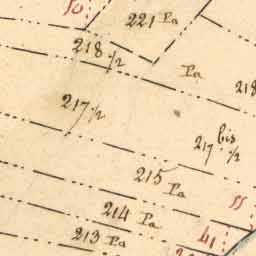 221 Pa
218 1/2
Pa
218
217 1/2
217 bis 1/2
215 Pa
214 Pa
213 Pa
41